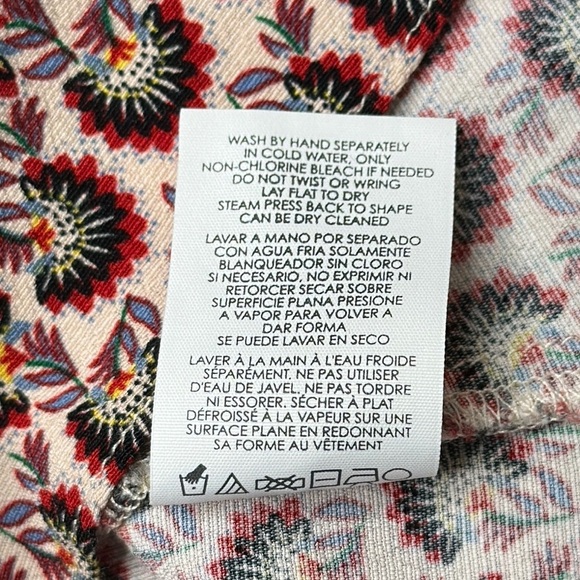 WASH BY HAND SEPARATELY
IN COLD WATER, ONLY
NON-CHLORINE BLEACH IF NEEDED
DO NOT TWIST OR WRING
LAY FLAT TO DRY
STEAM PRESS BACK TO SHAPE
CAN BE DRY CLEANED
LAVAR A MANO POR SEPARADO
CON AGUA FRIA SOLAMENTE
BLANQUEADOR SIN CLORO
SI NECESARIO, NO EXPRIMIR NI
RETORCER SECAR SOBRE
SUPERFICIE PLANA PRESIONE
A VAPOR PARA VOLVER A
DAR FORMA
SE PUEDE LAVAR EN SECO
LAVER À LA MAIN À L'EAU FROIDE
SÉPARÉMENT. NE PAS UTILISER
D'EAU DE JAVEL. NE PAS TORDRE
NI ESSORER. SÉCHER À PLAT
DÉFROISSÉ À LA VAPEUR SUR UNE
SURFACE PLANE EN REDONNANT
SA FORME AU VÊTEMENT